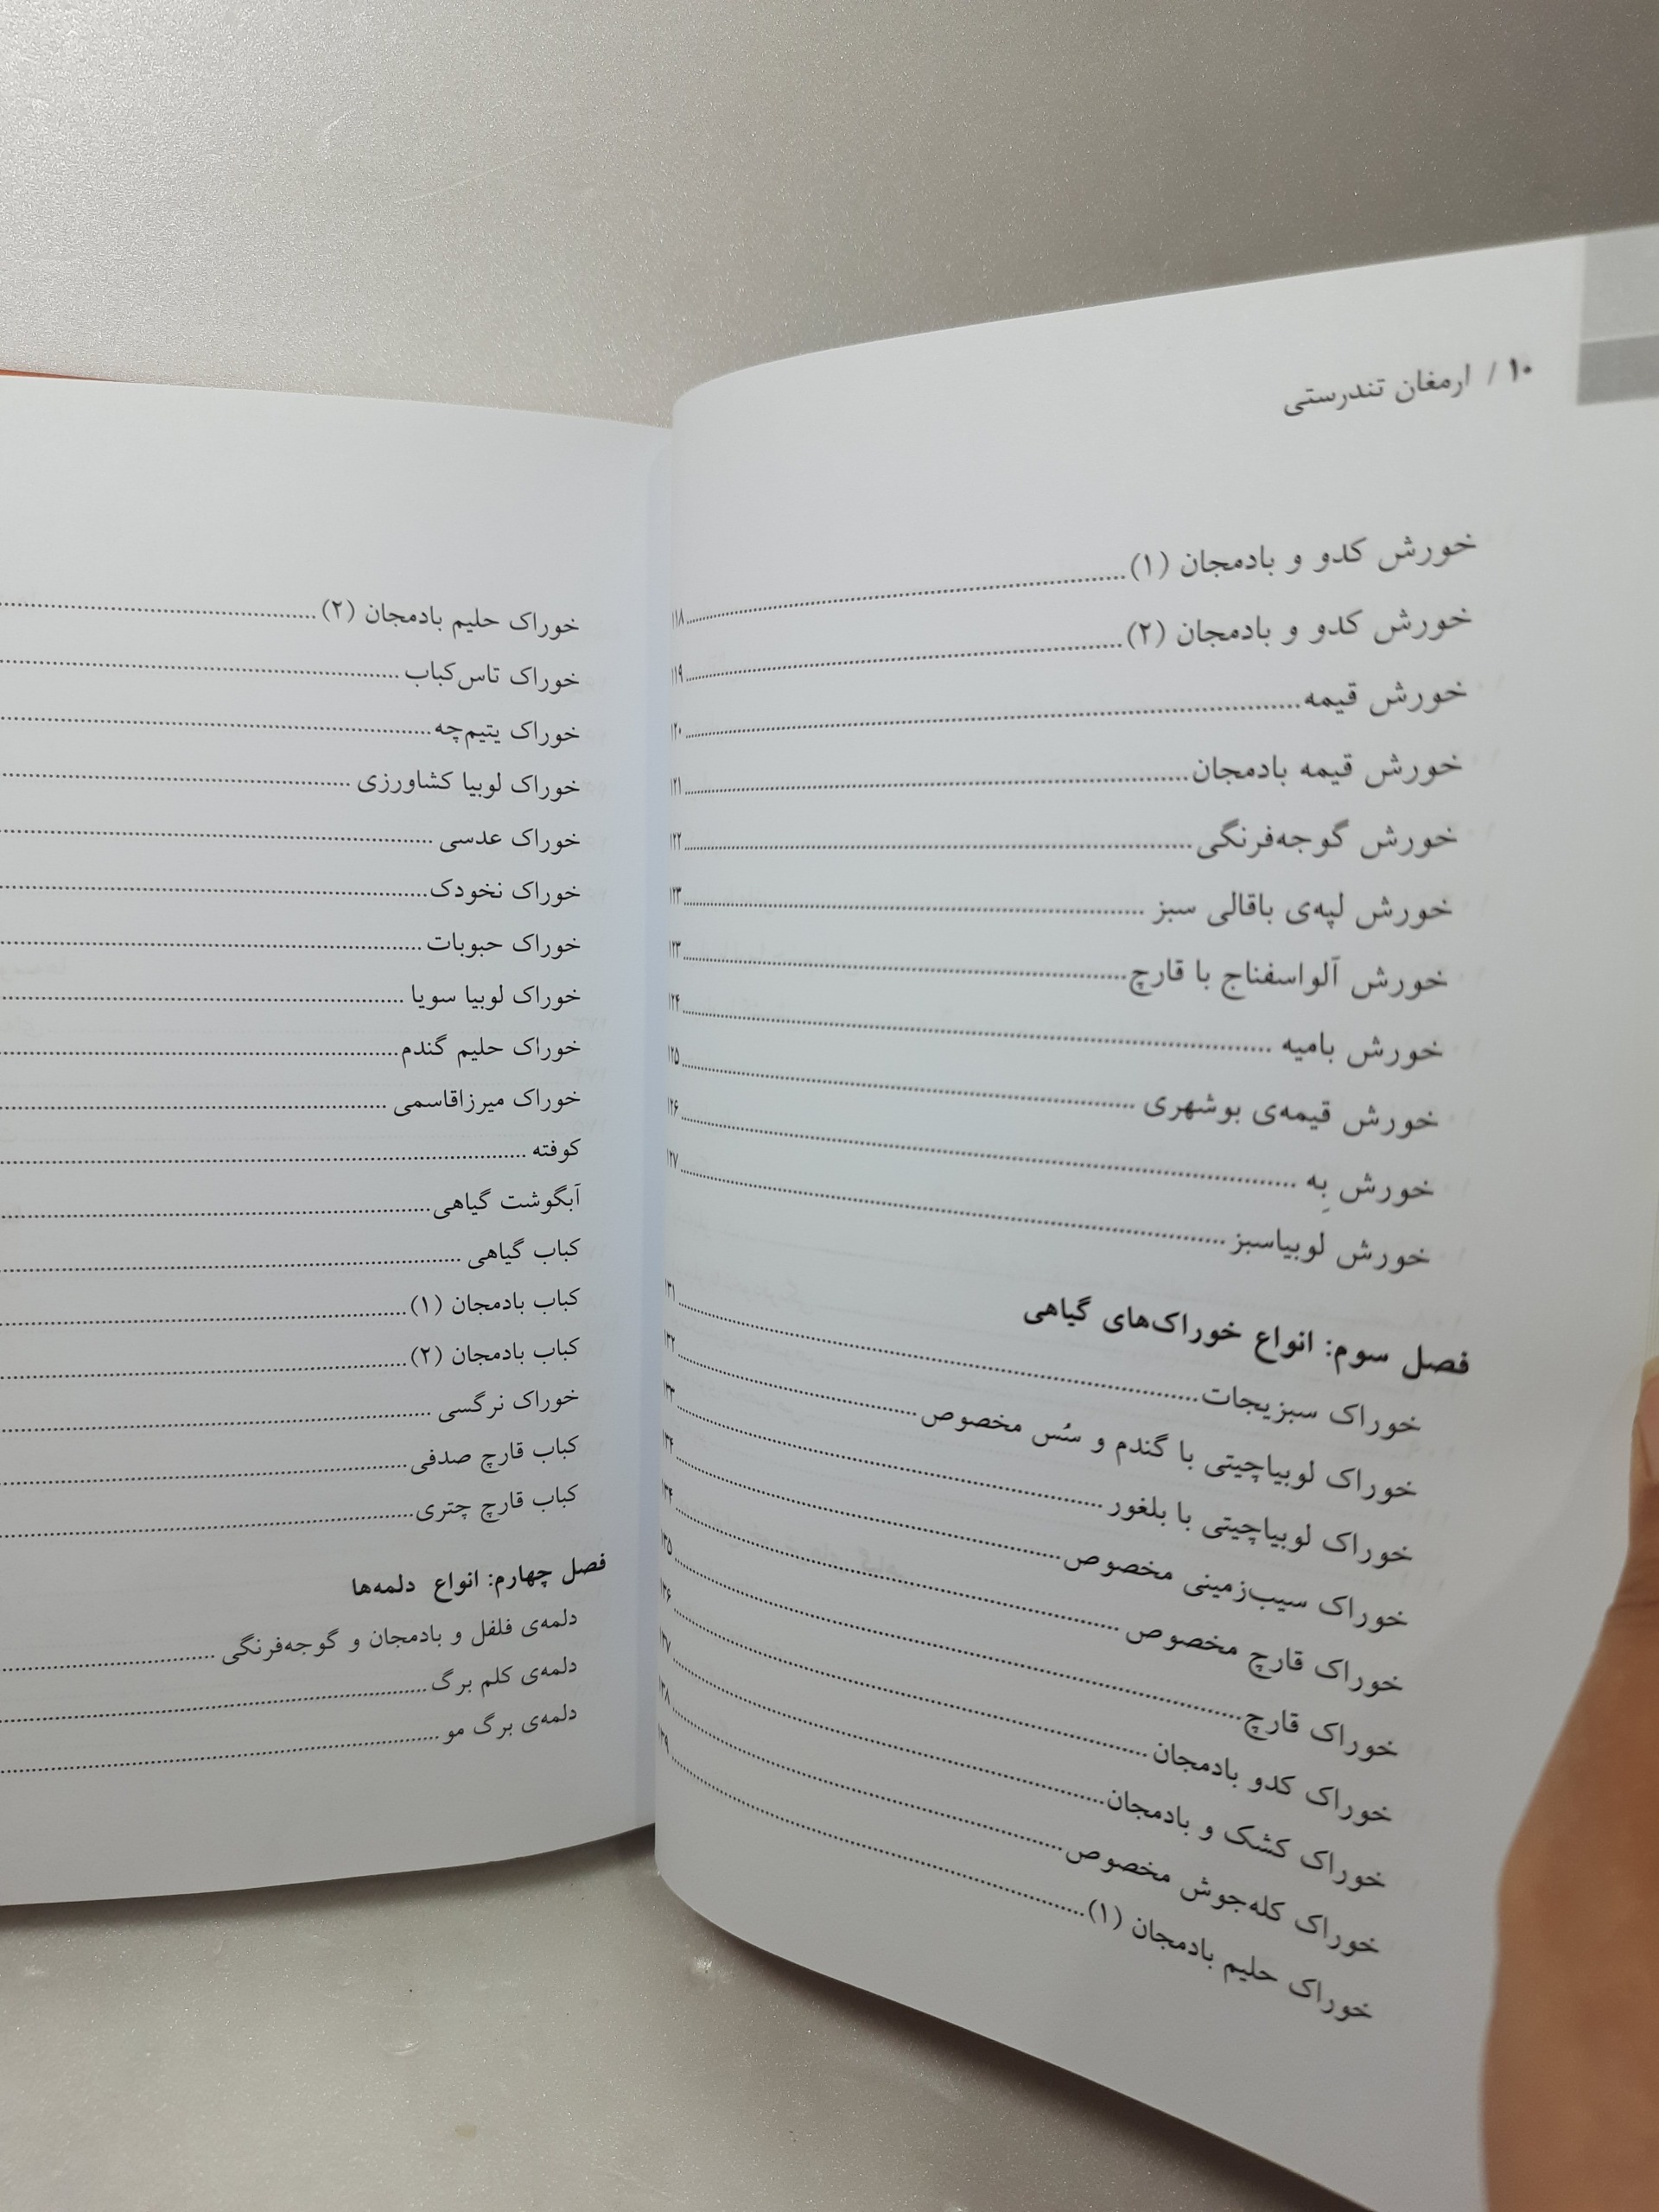 ۱۰ / ارمغان تندرستی
خورش کدو و بادمجان (۱)........۱۱۸
خورش کدو و بادمجان (۲)........۱۱۹
خورش قیمه........۱۲۰
خورش قیمه بادمجان........۱۲۱
خورش گوجه‌فرنگی........۱۲۲
خورش لپه‌ی باقالی سبز ........۱۲۳
خورش آلواسفناج با قارچ........۱۲۳
خورش بامیه ........۱۲۴
خورش قیمه‌ی بوشهری ........۱۲۵
خورش بِه ........۱۲۶
خورش لوبیاسبز ........۱۲۷
فصل سوم: انواع خوراک‌های گیاهی
خوراک سبزیجات........۱۳۱
خوراک لوبیاچیتی با گندم و سُس مخصوص........۱۳۲
خوراک لوبیاچیتی با بلغور........۱۳۳
خوراک سیب‌زمینی مخصوص........۱۳۴
خوراک قارچ مخصوص ........۱۳۴
خوراک قارچ........۱۳۵
خوراک کدو بادمجان........۱۳۶
خوراک کشک و بادمجان........۱۳۷
خوراک کله‌جوش مخصوص........۱۳۸
خوراک حلیم بادمجان (۱)........۱۳۹
خوراک حلیم بادمجان (۲)........
خوراک تاس‌کباب ........
خوراک یتیم‌چه........
خوراک لوبیا کشاورزی ........
خوراک عدسی ........
خوراک نخودک........
خوراک حبوبات ........
خوراک لوبیا سویا ........
خوراک حلیم گندم........
خوراک میرزاقاسمی ........
کوفته ........
آبگوشت گیاهی........
کباب گیاهی ........
کباب بادمجان (۱)........
کباب بادمجان (۲)........
خوراک نرگسی ........
کباب قارچ صدفی........
کباب قارچ چتری........
فصل چهارم: انواع دلمه‌ها
دلمه‌ی فلفل و بادمجان و گوجه‌فرنگی ........
دلمه‌ی کلم برگ........
دلمه‌ی برگ مو........